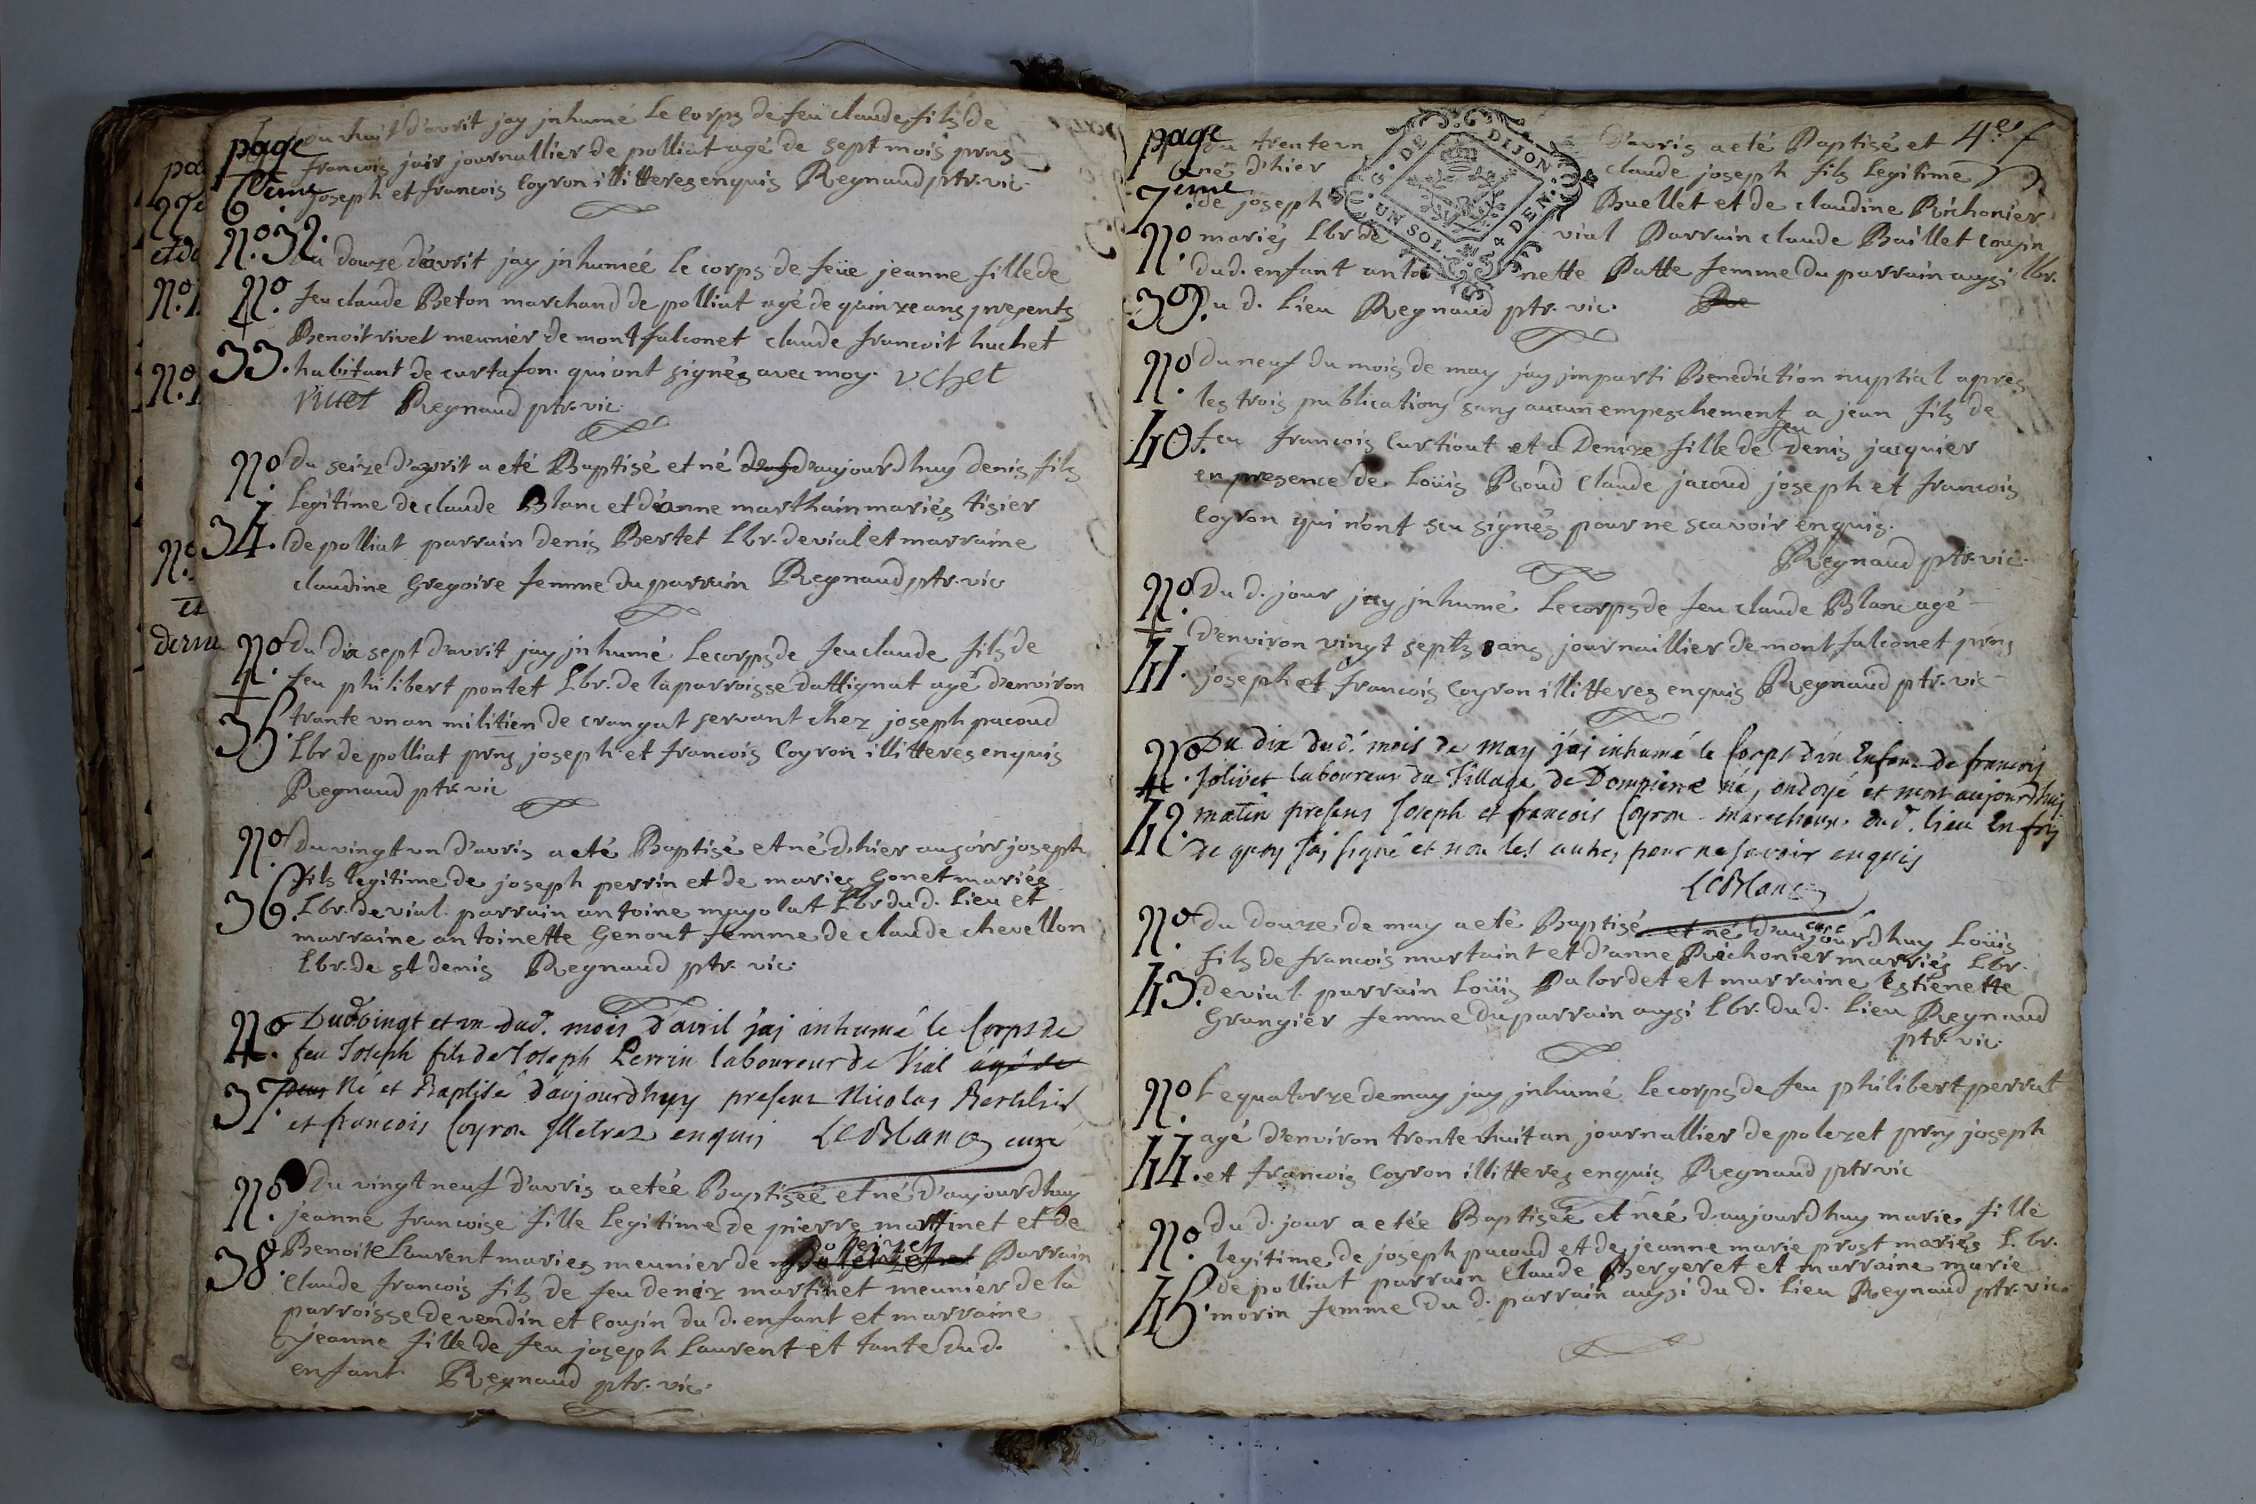 page
6eme
du huit d'avrit jay jnhumé Le corps de feu claude fils de
francois jair journallier de polliat agé de sept mois prns
joseph et francois Coyron illitteres enquis Regnaud ptr. vic.
No. 32.
du douze d'avrit jay jnhumée Le corps de feüe jeanne fille de
No. 33.
feu claude Beton marchand de polliat agé de quinze ans presents
Benoit rivet meunier de montfalconet claude francoit huchet
habitant de curtafon. qui ont signés avec moy. vchet
rivet Regnaud ptr. vic.
No. 34.
Du seize d'avrit a eté Baptisé et né d'aujourdhuy denis fils
Legitime de claude Blanc et d'anne marthain mariés tisier
de polliat parrain denis Bertet Lbr. de vial et marraine
claudine Gregoire femme du parrain Regnaud ptr. vic
No. 35.
Du dix sept d'avrit jay jnhumé Le corps de feu claude fils de
feu philibert pontet Lbr. de la parroisse dattignat agé d'environ
trante un an militien de crangat servant chez joseph pacoud
Lbr de polliat prns joseph et francois Coyron illitteres enquis
Regnaud ptr. vic
No. 36.
Du vingt un d'avris a eté Baptisé et né d'hier au soir joseph
fils legitime de joseph perrin et de maries Gonet mariés
Lbr. de vial. parrain antoine mayolat Lbr du d. Lieu et
marraine antoinette Genout femme de claude chevellon
Lbr. de st denis Regnaud ptr. vic.
No. 37.
Dud vingt et un dud. mois d'avril j'aj inhumé le Corps de
feu Joseph fils de Joseph Perrin laboureur de Vial agé de
Né et Baptisé d'aujourdhuy presens Nicolas Berthier
et francois Coyron enquis LeBlanc curé
No. 38.
Du vingt neuf d'avris a etée Baptisée et né d'aujourdhuy
jeanne francoise fille legitime de pierre martinet et de
Benoite Laurent maries meunier de poleizet Parrain
Claude francois fils de feu denix martinet meunier de la
parroisse de vendin et Cousin du d. enfant et marraine
jeanne fille de feu joseph Laurent et tante du d.
enfant. Regnaud ptr. vic.
page
7eme
4e f
G. DE DIJON
UN SOL 4 DEN.
No. 39.
du trente d'avris a eté Baptisé et
né d'hier claude joseph fils legitime
de joseph Buellet et de claudine Richonier
mariés Lbr de vial Parrain claude Baillet cousin
du d. enfant antoinette Patte femme du parrain aussi lbr.
du d. Lieu Regnaud ptr. vic.
No. 40.
Du neuf du mois de may jay imparti Benediction nuptial apres
les trois publications sans aucun empeschement a jean fils de
feu francois Curtiout et a Denize fille de feu denis jacquier
en presence de Loüis Proud Claude jacoud joseph et francois
Coyron qui n'ont scu signés pour ne scavoir enquis.
Regnaud ptr. vic.
No. 41.
Du d. jour jay jnhumé Le corps de feu claude Blanc agé
d'environ vingt septs ans journaillier de montfalconet prns
joseph et francois Coyron illitteres enquis Regnaud ptr. vic
No. 42.
Du dix dud. mois de may j'ai inhumé le Corps d'un Enfan de francois
Jolivet laboureur du Village de Dompierre né, ondoyé et mort aujourdhuy
matin presens Joseph et francois Coyron dud. lieu En foy
de quoy J'ai signé et non les autres pour ne scavoir enquis
LeBlanc
curé
No. 43.
Du douze de may a eté Baptisé et né d'aujourdhuy Loüis
fils de francois murtaint et d'anne Richonier mariés Lbr.
de vial parrain Loüis Palordet et marraine estienette
Grangier femme du parrain aussi Lbr. du d. Lieu Regnaud
ptr. vic.
No. 44.
Le quatorze de may jay jnhumé Le corps de feu philibert perrat
agé d'environ trente huit an journallier de polezet prns joseph
et francois Coyron illitteres enquis Regnaud ptr vic
No. 45.
du d. jour a etée Baptisée et née d'aujourdhuy marie fille
legitime de joseph pacoud et de jeanne marie prost mariés Lbr.
de polliat parrain Claude Bergeret et marraine marie
morin femme du d. parrain aussi du d. Lieu Regnaud ptr. vic.